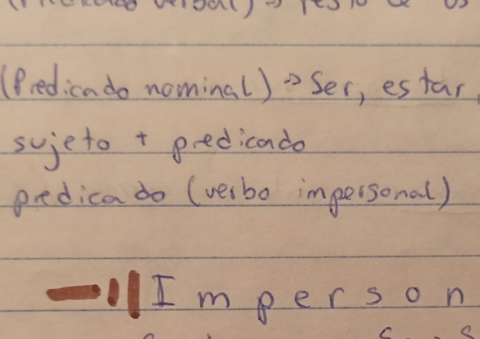 (Predicado verbal) → resto de os
(Predicado nominal) → Ser, estar,
sujeto + predicado
predicado (verbo impersonal)
Imperson